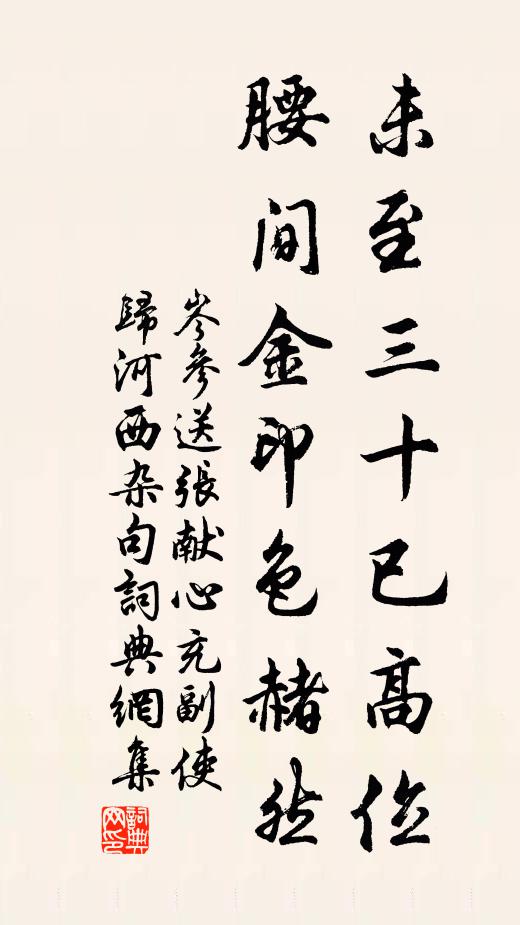 未至三十已高位
腰间金印色赭然
岑參送張献心充副使
歸河西杂句詞典網集
詞典
网印